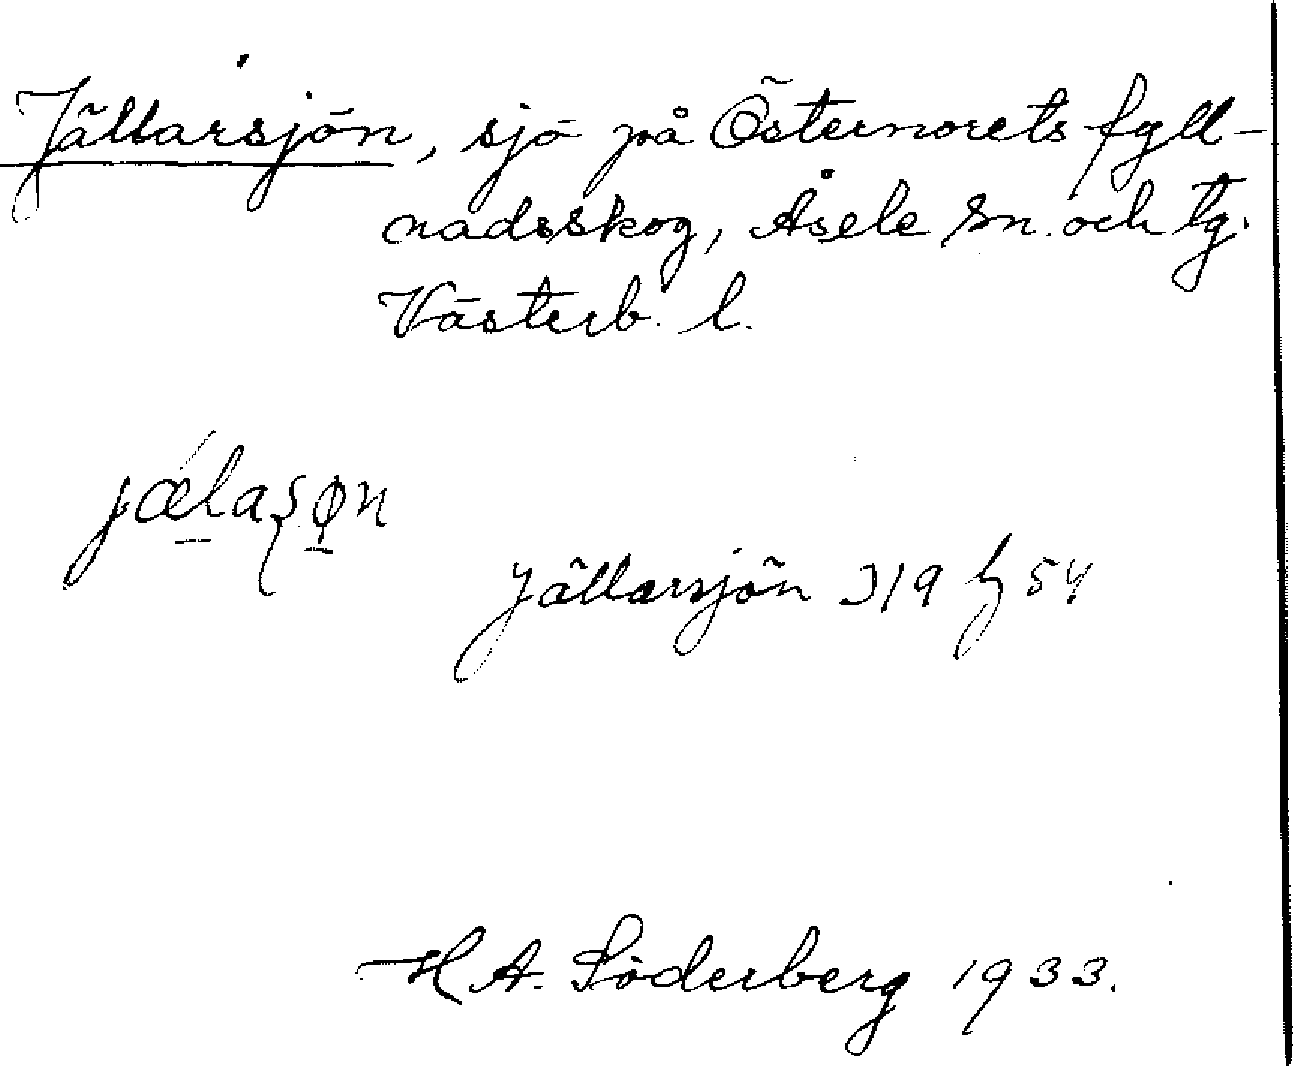 Jällarsjön, sjö på Östernorets fyll-
nadsskog, Åsele sn. och tg.
Västerb. l.
jælaʂøn
Jällarsjön 319 54
H A. Söderberg 1933.